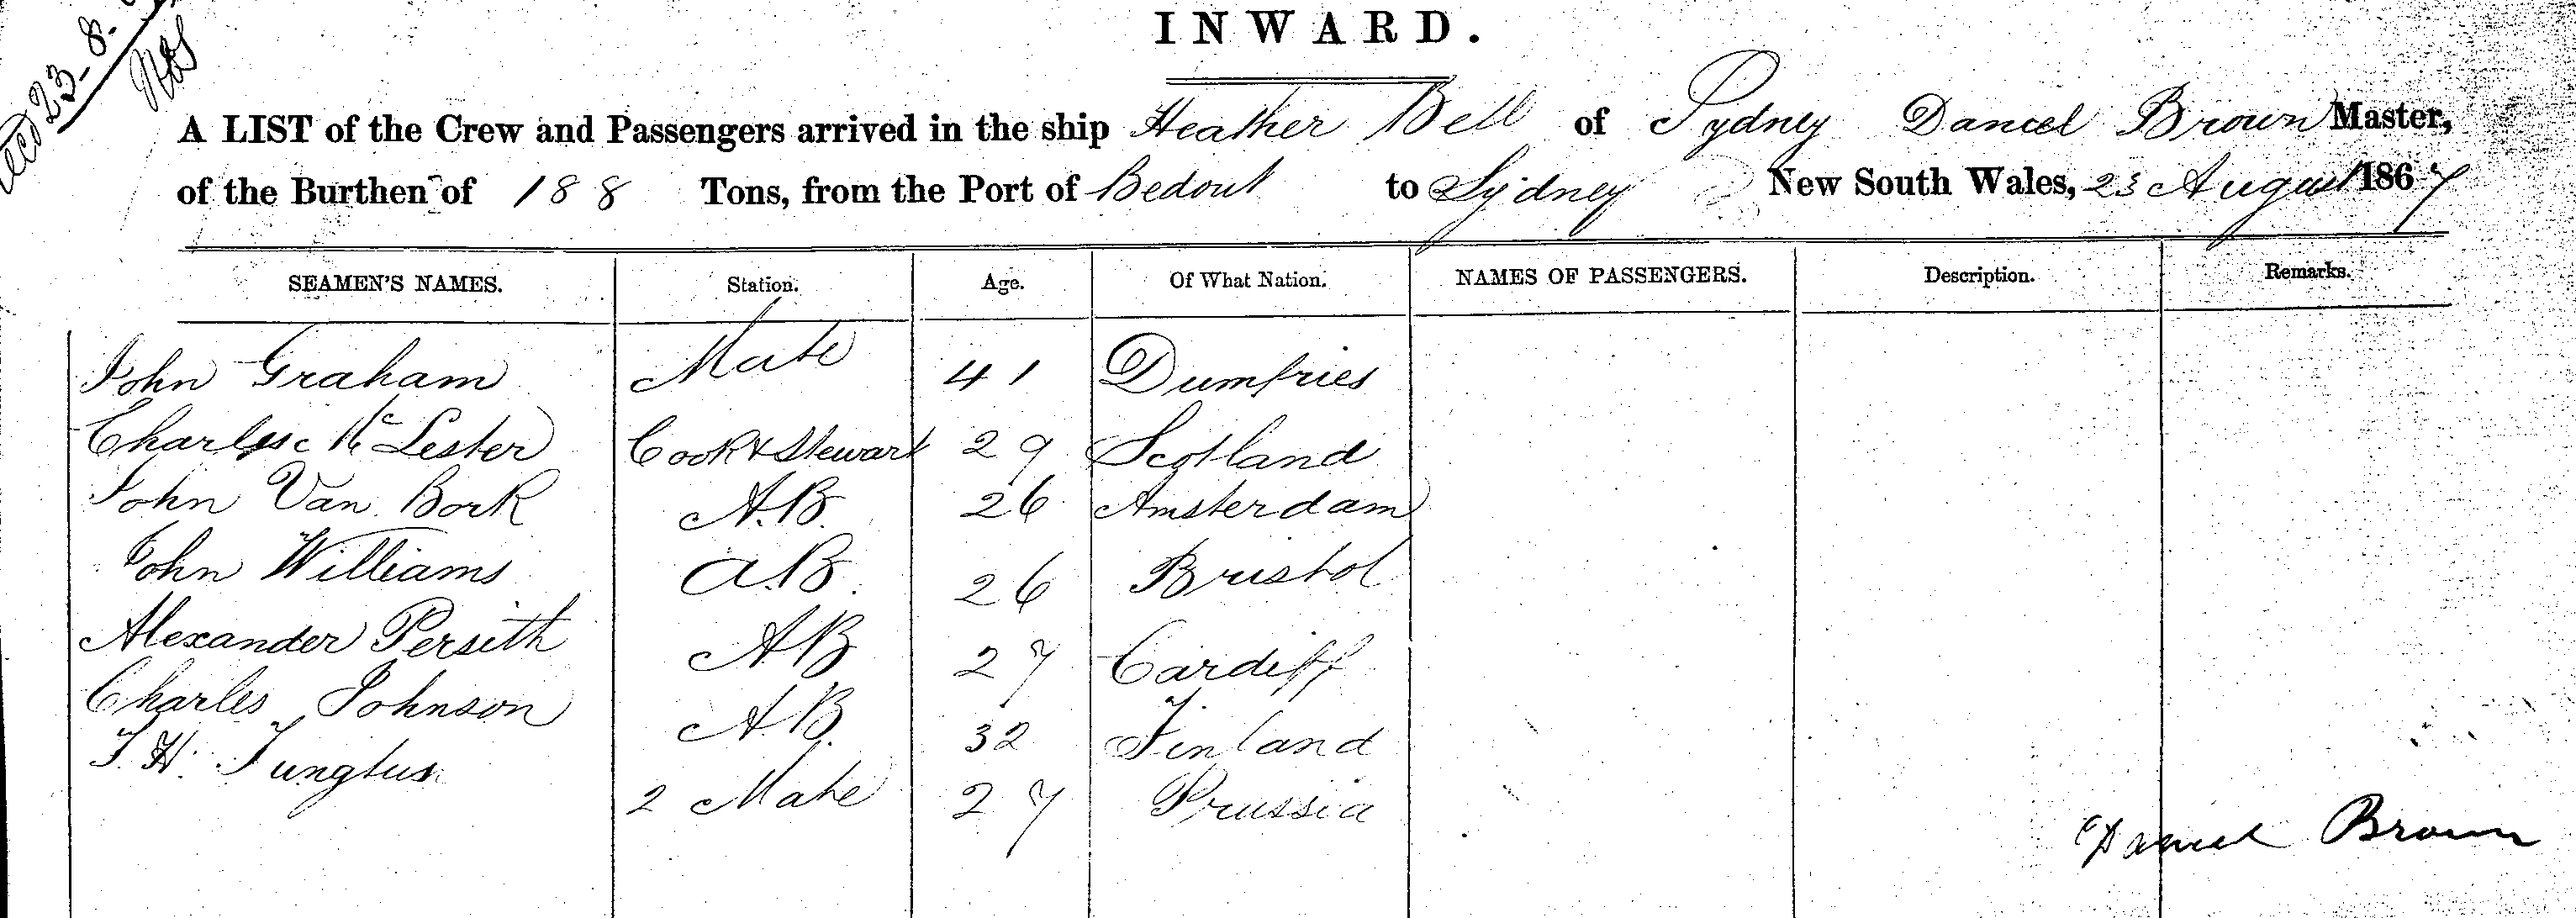 23-8-
INWARD.
A LIST of the Crew and Passengers arrived in the ship Heather Bell of Sydney Daniel Brown Master,
of the Burthen of 188 Tons, from the Port of Bedout to Sydney New South Wales, 23 August 1867
SEAMEN'S NAMES. Station. Age. Of What Nation. NAMES OF PASSENGERS. Description. Remarks.
John Graham Mate 41 Dumfries
Charles Mc Lester Cook & Steward 29 Scotland
John Van Bork A.B. 26 Amsterdam
John Williams A.B. 26 Bristol
Alexander Persith AB 27 Cardiff
Charles Johnson A.B. 32 Finland
2 Mate 27 Prussia
Daniel Brown